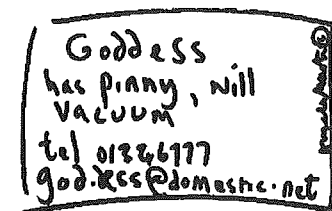 Goddess
has pinny, will
vacuum
tel 01846777
god.ess@domestic.net